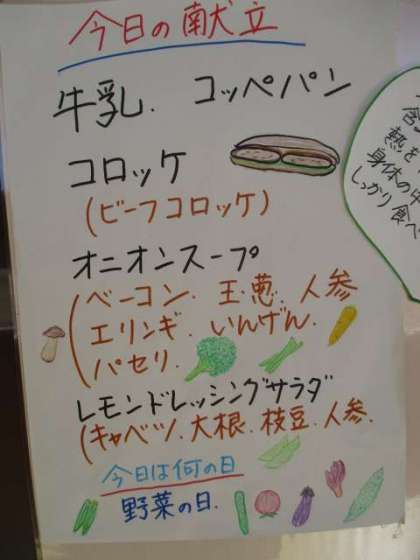 今日の献立
牛乳. コッペパン
コロッケ
(ビーフコロッケ)
オニオンスープ
(ベーコン. 玉葱. 人参
エリンギ. いんげん.
パセリ.
レモンドレッシングサラダ
(キャベツ. 大根. 枝豆. 人参.
今日は何の日
野菜の日.
熱を
身体の
しっかり食べ